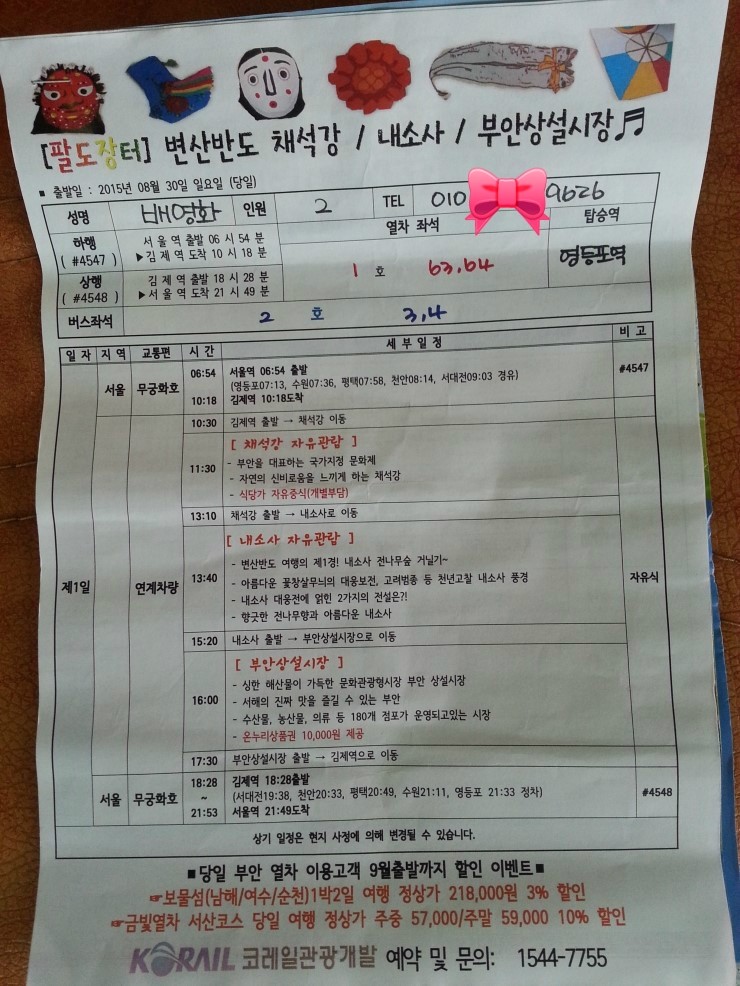 [팔도장터] 변산반도 채석강 / 내소사 / 부안상설시장♬
■ 출발일 : 2015년 08월 30일 일요일 (당일)
성명 배영화 인원 2 TEL 010 9626
하행 ( #4547 ) 서 울 역 출발 06 시 54 분 ▶김 제 역 도착 10 시 18 분 열차 좌석 탑승역
상행 ( #4548 ) 김 제 역 출발 18 시 28 분 ▶서 울 역 도착 21 시 49 분 1 호 63,64 영등포역
버스좌석 2 호 3,4
일 자 지 역 교통편 시 간 세 부 일 정 비 고
서울 무궁화호 06:54 서울역 06:54 출발 #4547
(영등포07:13, 수원07:36, 평택07:58, 천안08:14, 서대전09:03 경유)
10:18 김제역 10:18도착
10:30 김제역 출발 → 채석강 이동
[ 채석강 자유관람 ]
11:30 - 부안을 대표하는 국가지정 문화제
- 자연의 신비로움을 느끼게 하는 채석강
- 식당가 자유중식(개별부담)
13:10 채석강 출발 → 내소사로 이동
[ 내소사 자유관람 ]
- 변산반도 여행의 제1경! 내소사 전나무숲 거닐기~
제1일 연계차량 13:40 - 아름다운 꽃창살무늬의 대웅보전, 고려범종 등 천년고찰 내소사 풍경 자유식
- 내소사 대웅전에 얽힌 2가지의 전설은?!
- 향긋한 전나무향과 아름다운 내소사
15:20 내소사 출발 → 부안상설시장으로 이동
[ 부안상설시장 ]
- 싱한 해산물이 가득한 문화관광형시장 부안 상설시장
16:00 - 서해의 진짜 맛을 즐길 수 있는 부안
- 수산물, 농산물, 의류 등 180개 점포가 운영되고있는 시장
- 온누리상품권 10,000원 제공
17:30 부안상설시장 출발 → 김제역으로 이동
서울 무궁화호 18:28 김제역 18:28출발 #4548
~ (서대전19:38, 천안20:33, 평택20:49, 수원21:11, 영등포 21:33 정차)
21:53 서울역 21:49도착
상기 일정은 현지 사정에 의해 변경될 수 있습니다.
■당일 부안 열차 이용고객 9월출발까지 할인 이벤트■
☞보물섬(남해/여수/순천)1박2일 여행 정상가 218,000원 3% 할인
☞금빛열차 서산코스 당일 여행 정상가 주중 57,000/주말 59,000 10% 할인
KORAIL 코레일관광개발 예약 및 문의: 1544-7755